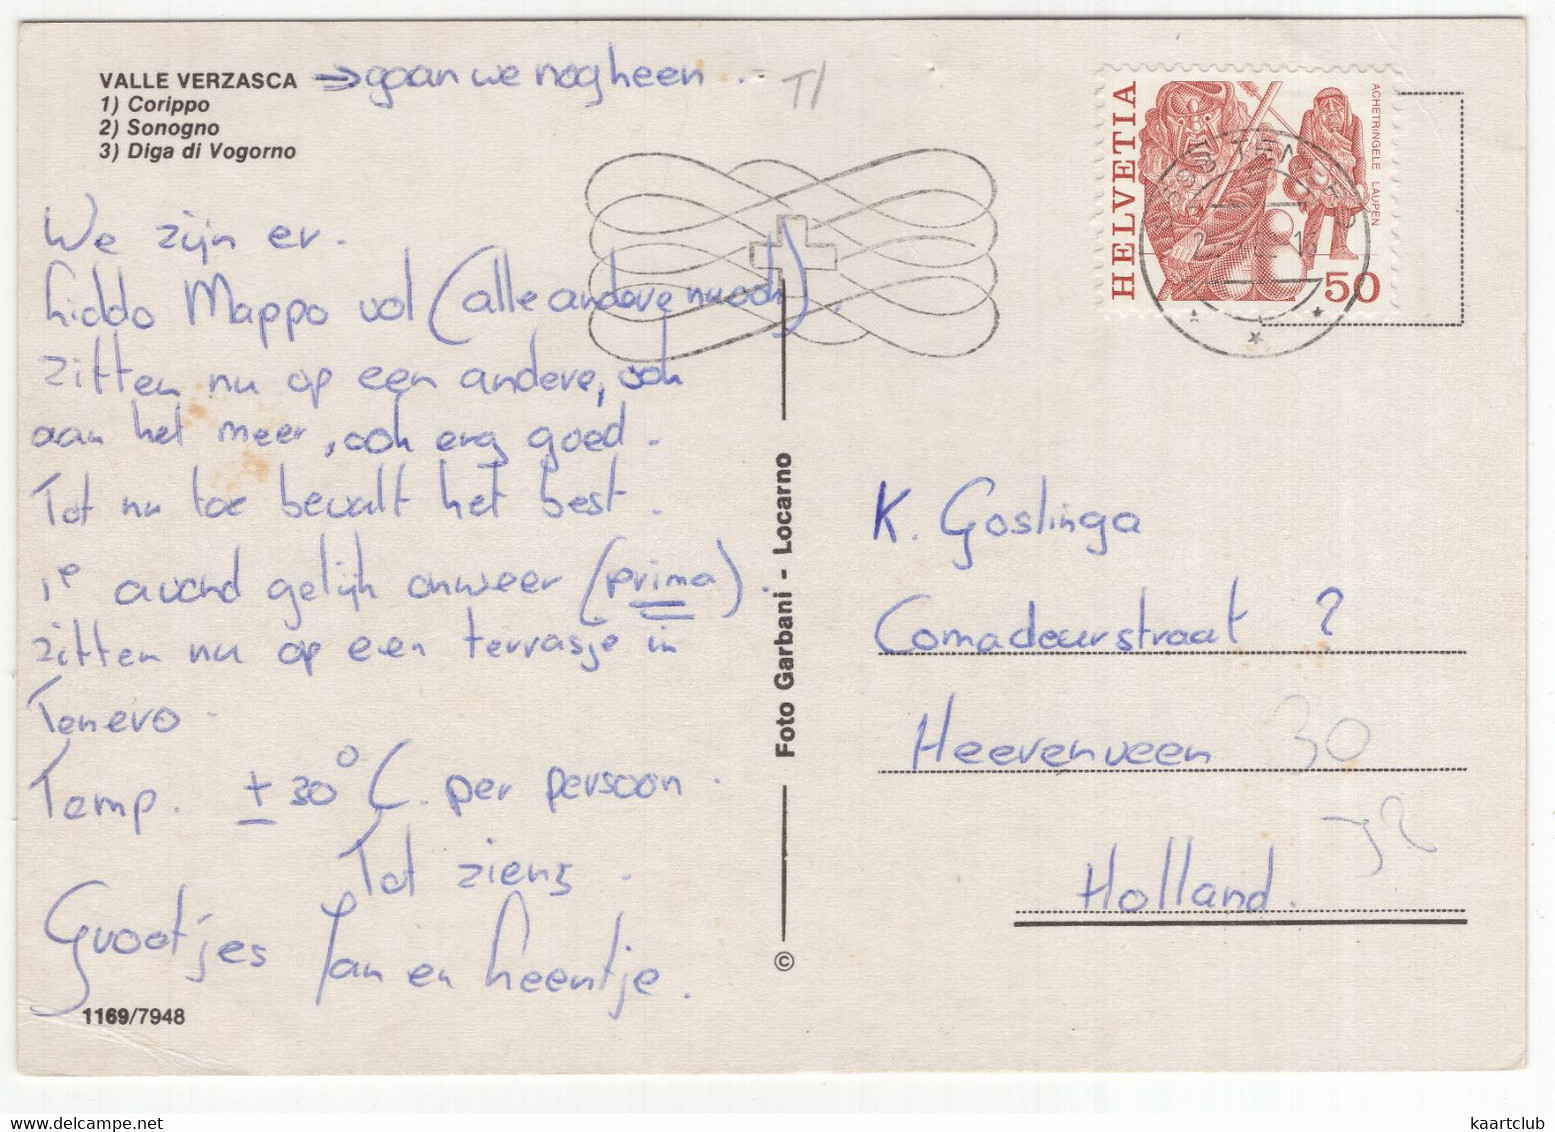 VALLE VERZASCA ⇒ gaan we nog heen.
1) Corippo
2) Sonogno
3) Diga di Vogorno
We zijn er.
Liddo Mappo vol (alle andere nu ook).
zitten nu op een andere, ook
aan het meer, ook erg goed.
Tot nu toe bevalt het best.
1e avond gelijk onweer (prima).
zitten nu op een terrasje in
Tenero.
Temp. ± 30° C. per persoon.
Tot ziens.
Grootjes Jan en Leentje.
1169/7948
Foto Garbani - Locarno
©
TI
HELVETIA
ACHETRINGELE LAUPEN
50
K. Goslinga
Comadeurstraat ?
Heerenveen 30
Holland.
kaartclub